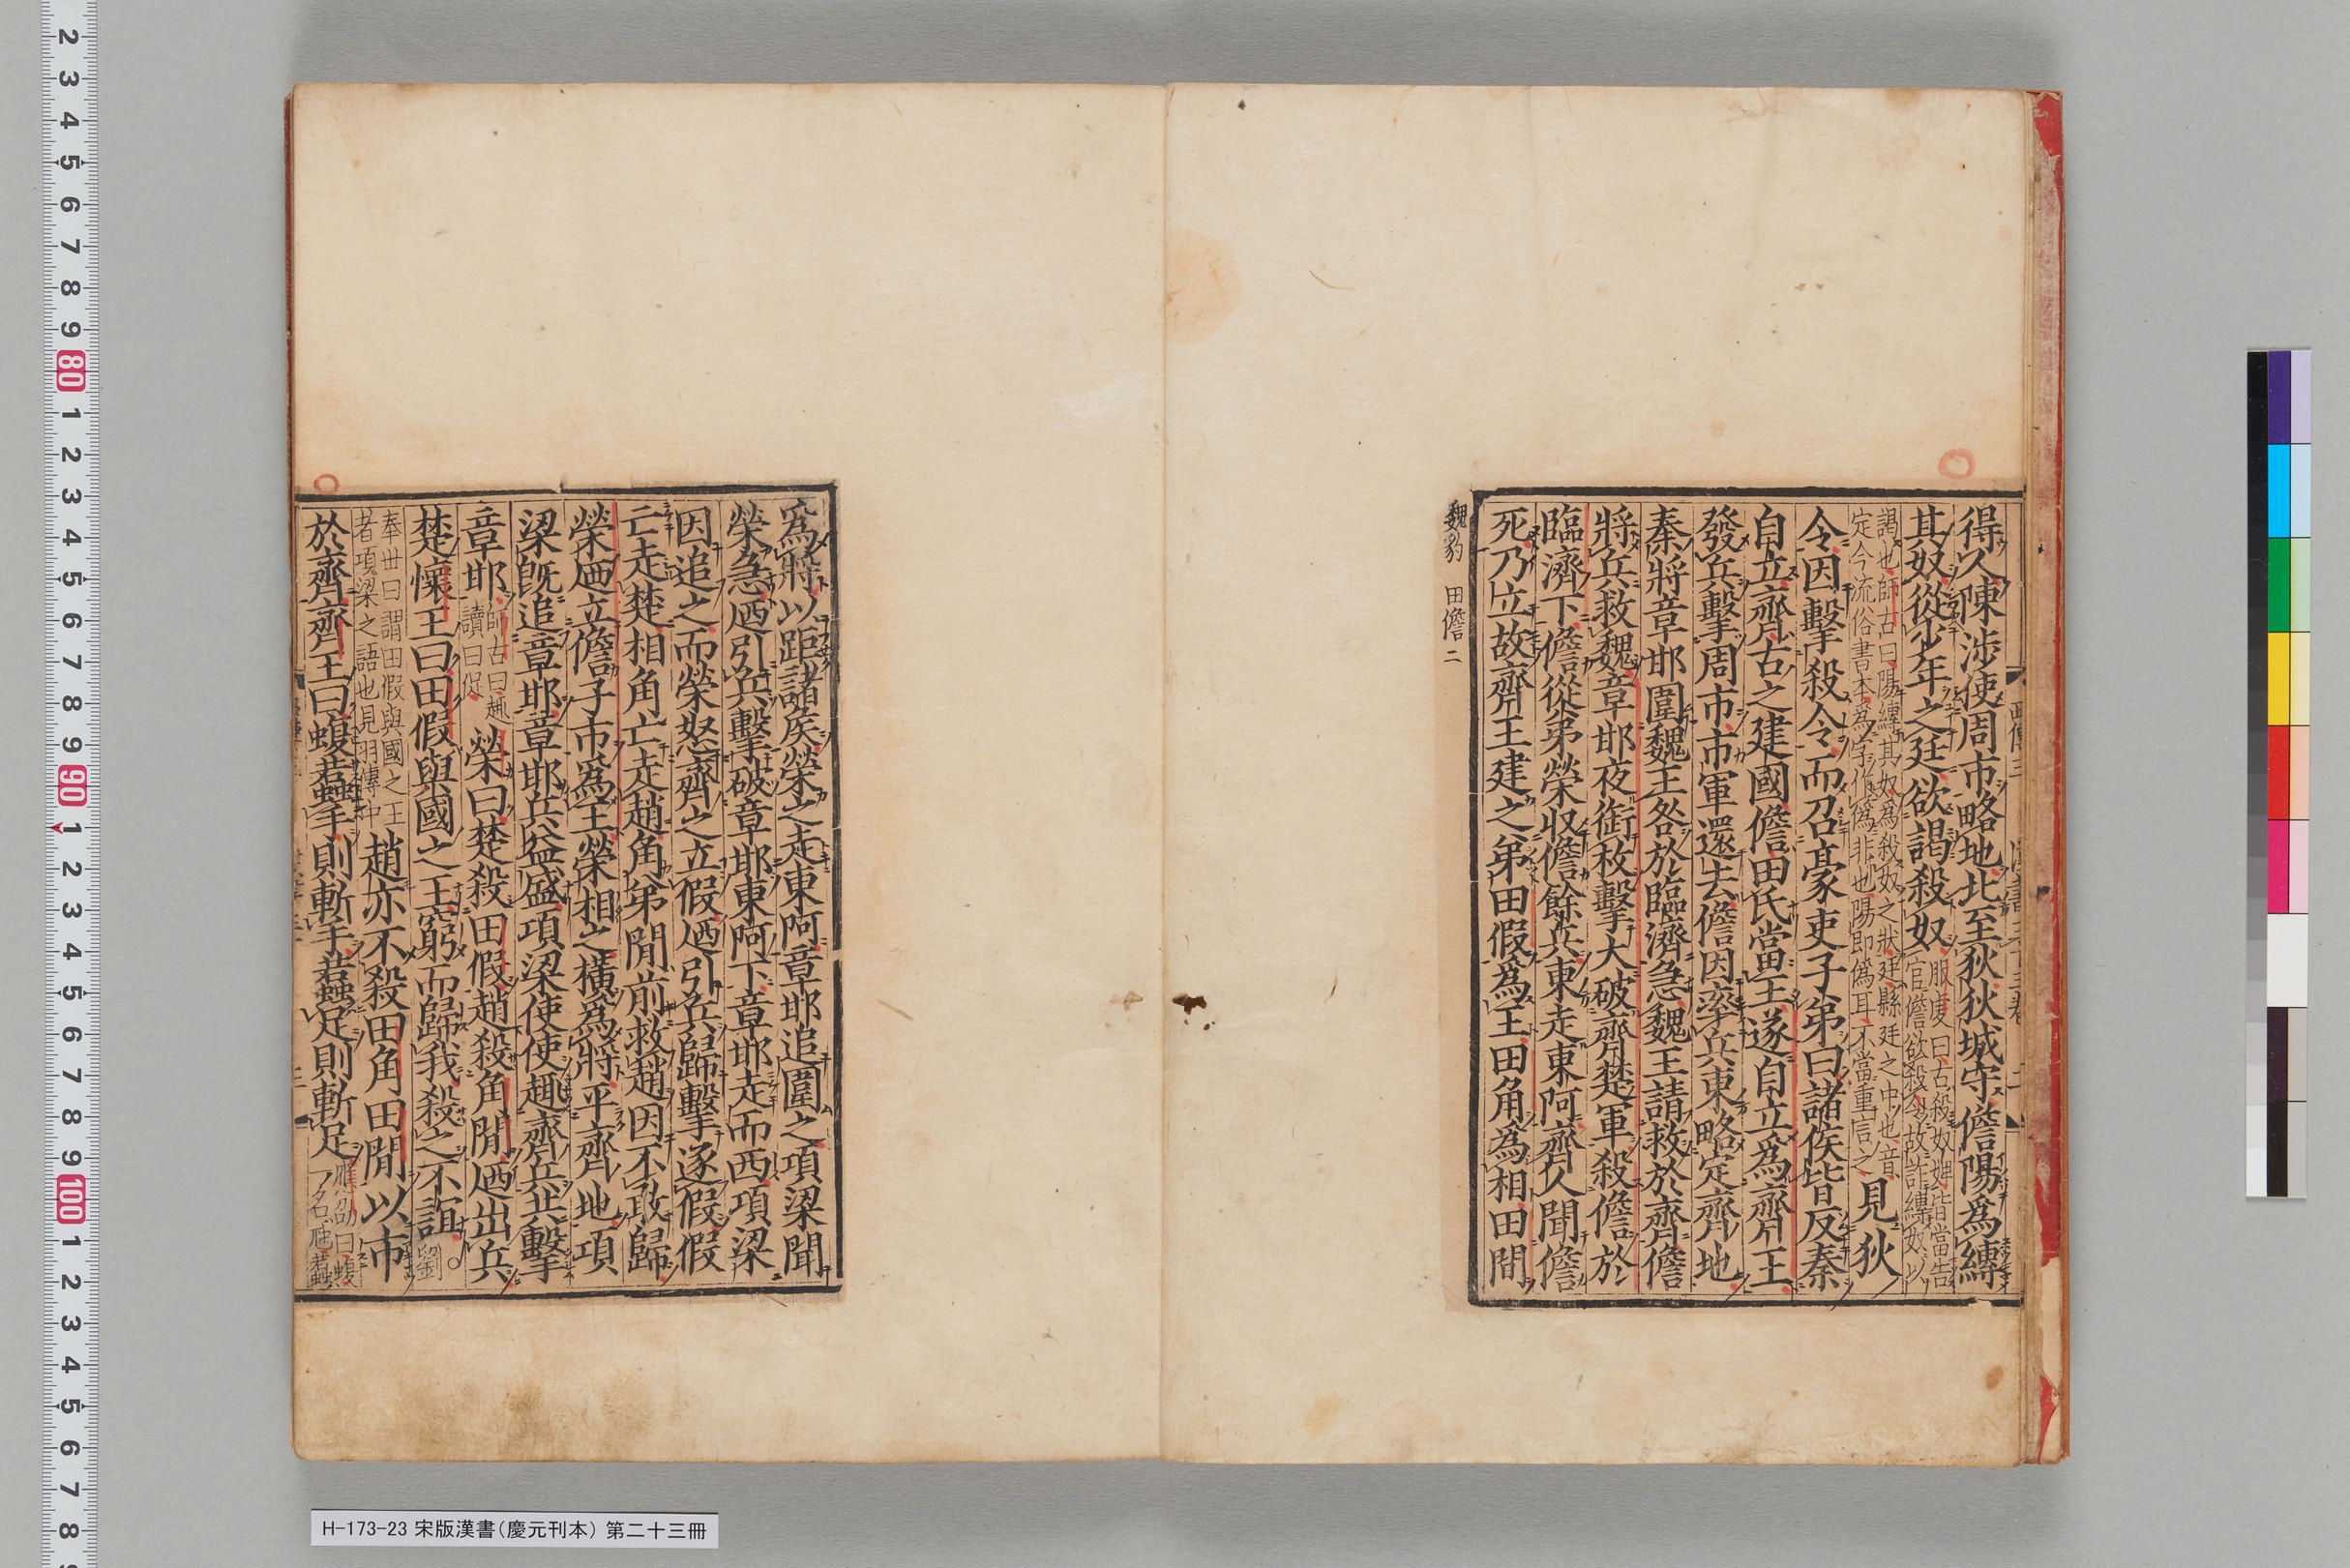 得人陳涉使周市略地北至狄狄城守儋陽爲縛
其奴從少年之廷欲謁殺奴服虔曰古殺奴婢皆當告官儋欲殺令故詐縛奴以
謁也師古曰陽縛其奴爲殺奴之狀廷縣廷之中也音定今流俗書本爲字作僞非也陽即僞耳不當重言之見狄
令因擊殺令而召豪吏子弟曰諸侯皆反秦
自立齊古之建國儋田氏當王遂自立爲齊王
發兵擊周市市軍還去儋因率兵東略定齊地
秦將章邯圍魏王咎於臨濟急魏王請救於齊儋
將兵救魏章邯夜銜枚擊大破齊楚軍殺儋於
臨濟下儋從弟榮收儋餘兵東走東阿齊人聞儋
死乃立故齊王建之弟田假爲王田角爲相田閒
魏豹 田儋 二
爲將以距諸侯榮之走東阿章邯追圍之項梁聞
榮急迺引兵擊破章邯東阿下章邯走而西項梁
因追之而榮怒齊之立假迺引兵歸擊逐假假
亡走楚相角亡走趙角弟閒前救趙因不敢歸
榮迺立儋子市爲王榮相之橫爲將平齊地項
梁旣追章邯章邯兵益盛項梁使使趣齊兵共擊
章邯師古曰趣讀曰促榮曰楚殺田假趙殺角閒迺出兵
楚懷王曰田假與國之王窮而歸我殺之不誼劉
奉世曰謂田假與國之王者項梁之語也見羽傳中趙亦不殺田角田閒以市
於齊齊王曰蝮蠚手則斬手蠚足則斬足應劭曰蝮一名虺蠚
H-173-23 宋版漢書(慶元刊本) 第二十三冊